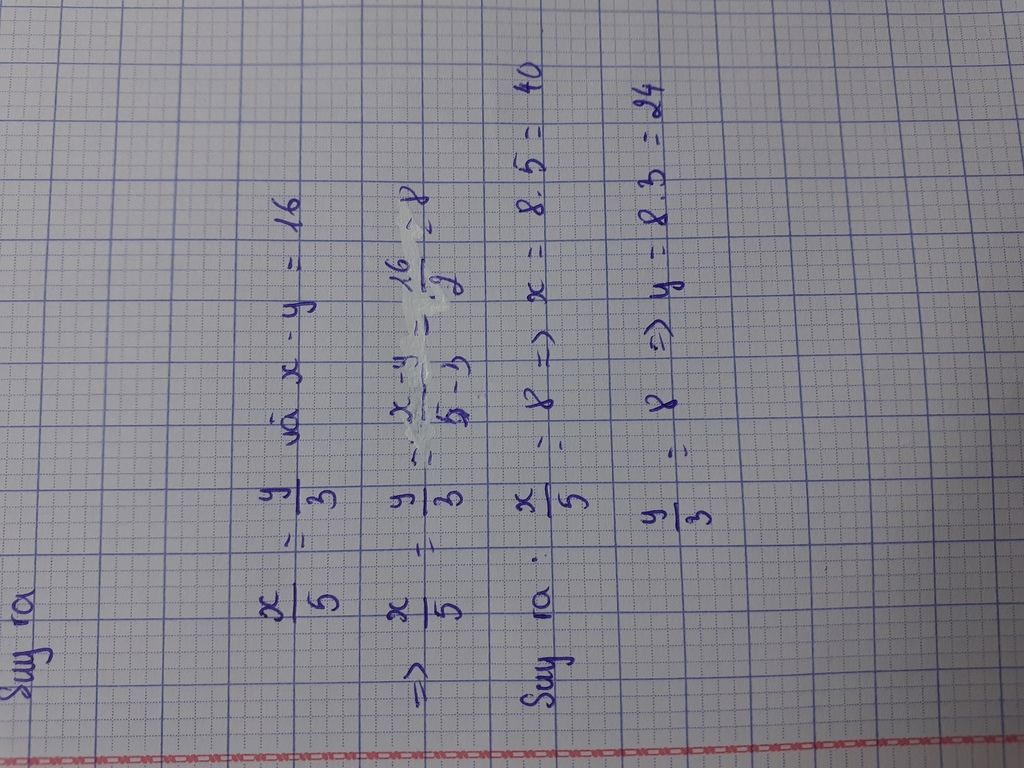 Suy ra
x/5 = y/3 và x - y = 16
=> x/5 = y/3 = x-y/5-3 = 16/2 = 8
Suy ra . x/5 = 8 => x = 8.5 = 40
y/3 = 8 => y = 8.3 = 24